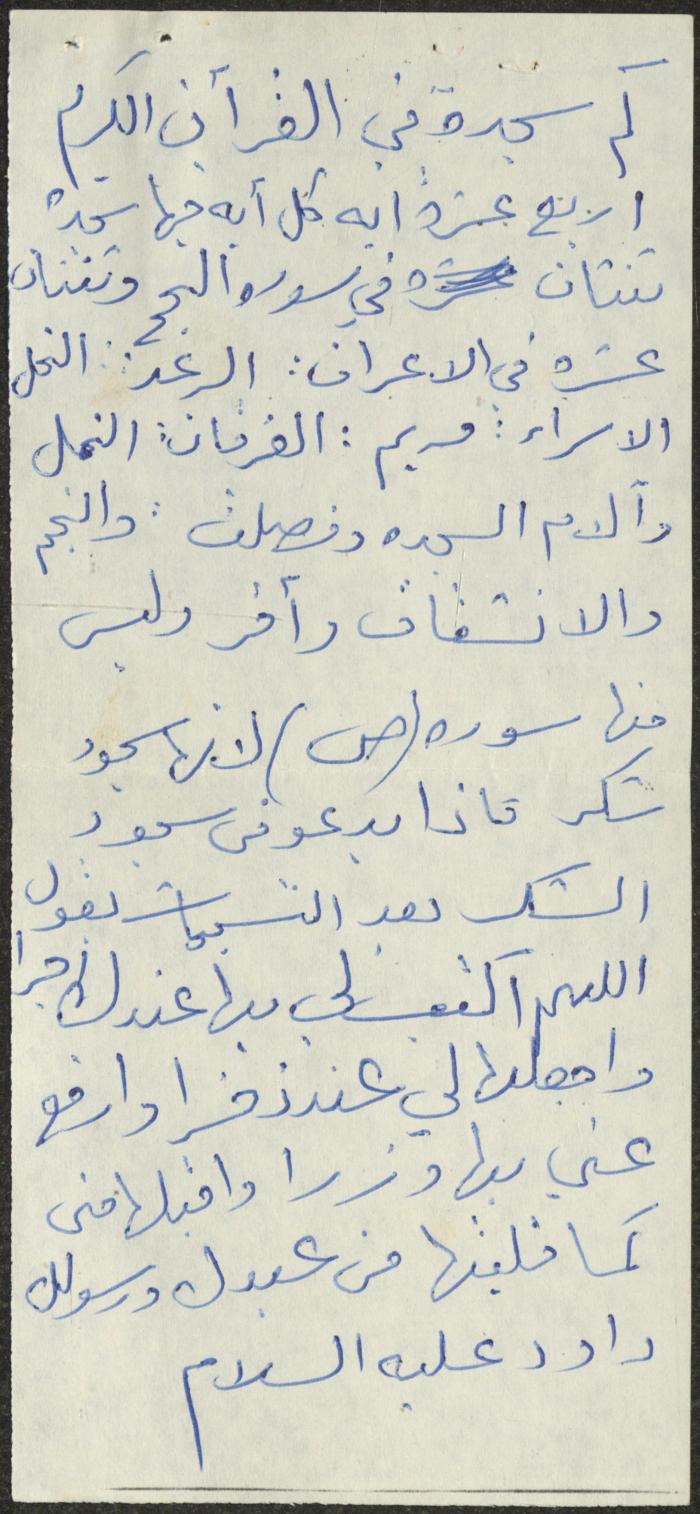 كم سجدة في القرآن الكريم
اربع عشرة ايه كل آيه فيها سجدة
ثنتان في سوره الحج وثنتان
عشره في الاعراف : الرعد : النحل
الاسراء : مريم : الفرقان : النمل
وآلام السجده وفصلت : والنجم
والانشقاق وآقر وليس
منها سوره (ص) لانها سجود
شكر فاذا يدعو في سجود
الشكر بعد التسبيحات يقول
اللهم آكتب لي بها عندك اجرا
واجعلها لي عند ذخرا وارفع
عني بها وزرا واقبلها مني
كما قبلتها من عبدك ورسولك
داود عليه السلام